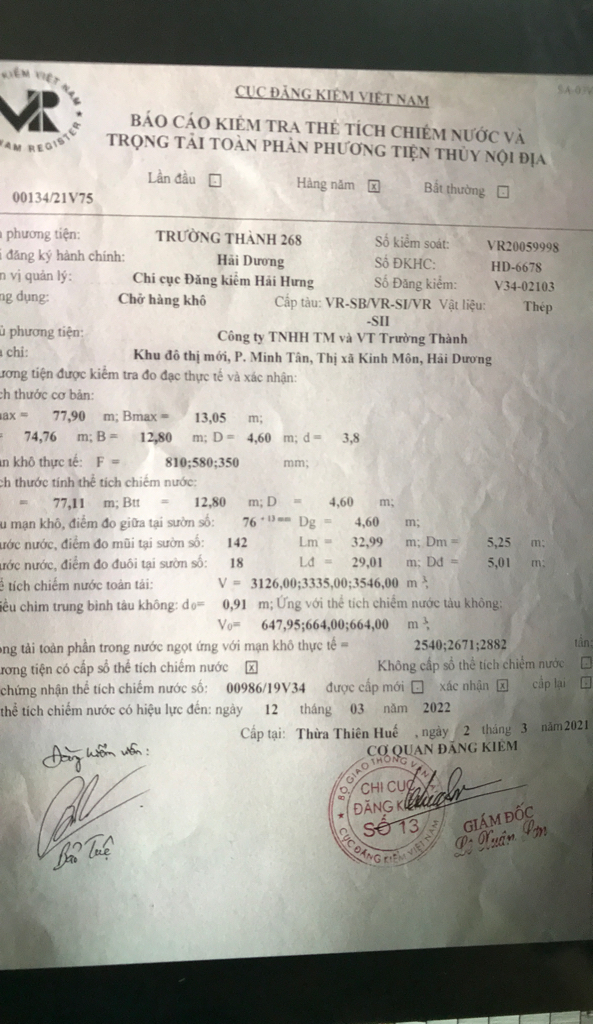 KIỂM VIỆT NAM
VR
AM REGISTER
CỤC ĐĂNG KIỂM VIỆT NAM
BÁO CÁO KIỂM TRA THỂ TÍCH CHIẾM NƯỚC VÀ
TRỌNG TẢI TOÀN PHẦN PHƯƠNG TIỆN THỦY NỘI ĐỊA
Lần đầu Hàng năm x Bất thường
00134/21V75
phương tiện: TRƯỜNG THÀNH 268 Số kiểm soát: VR20059998
i đăng ký hành chính: Hải Dương Số ĐKHC: HD-6678
n vị quản lý: Chi cục Đăng kiểm Hải Hưng Số Đăng kiểm: V34-02103
ng dụng: Chở hàng khô Cấp tàu: VR-SB/VR-SI/VR Vật liệu: Thép
-SII
ủ phương tiện: Công ty TNHH TM và VT Trường Thành
chỉ: Khu đô thị mới, P. Minh Tân, Thị xã Kinh Môn, Hải Dương
ương tiện được kiểm tra đo đạc thực tế và xác nhận:
ch thước cơ bản:
max = 77,90 m; Bmax = 13,05 m;
= 74,76 m; B = 12,80 m; D = 4,60 m; d = 3,8
ạn khô thực tế: F = 810;580;350 mm;
ch thước tính thể tích chiếm nước:
= 77,11 m; Btt = 12,80 m; D = 4,60 m;
u mạn khô, điểm đo giữa tại sườn số: 76 + 13 mm Dg = 4,60 m;
ước nước, điểm đo mũi tại sườn số: 142 Lm = 32,99 m; Dm = 5,25 m;
ước nước, điểm đo đuôi tại sườn số: 18 Lđ = 29,01 m; Dđ = 5,01 m;
ể tích chiếm nước toàn tải: V = 3126,00;3335,00;3546,00 m 3;
iều chìm trung bình tàu không: do= 0,91 m; Ứng với thể tích chiếm nước tàu không:
Vo= 647,95;664,00;664,00 m 3;
ọng tải toàn phần trong nước ngọt ứng với mạn khô thực tế = 2540;2671;2882 tấn;
ương tiện có cấp sổ thể tích chiếm nước x Không cấp sổ thể tích chiếm nước
chứng nhận thể tích chiếm nước số: 00986/19V34 được cấp mới xác nhận x cấp lại
thể tích chiếm nước có hiệu lực đến: ngày 12 tháng 03 năm 2022
Cấp tại: Thừa Thiên Huế , ngày 2 tháng 3 năm 2021
Đăng kiểm viên: CƠ QUAN ĐĂNG KIỂM
BỘ GIAO THÔNG VẬN
CHI CỤC
ĐĂNG K
SỐ 13
CỤC ĐĂNG KIỂM VIỆT NAM
GIÁM ĐỐC
Lê Xuân
Bảo Tuệ